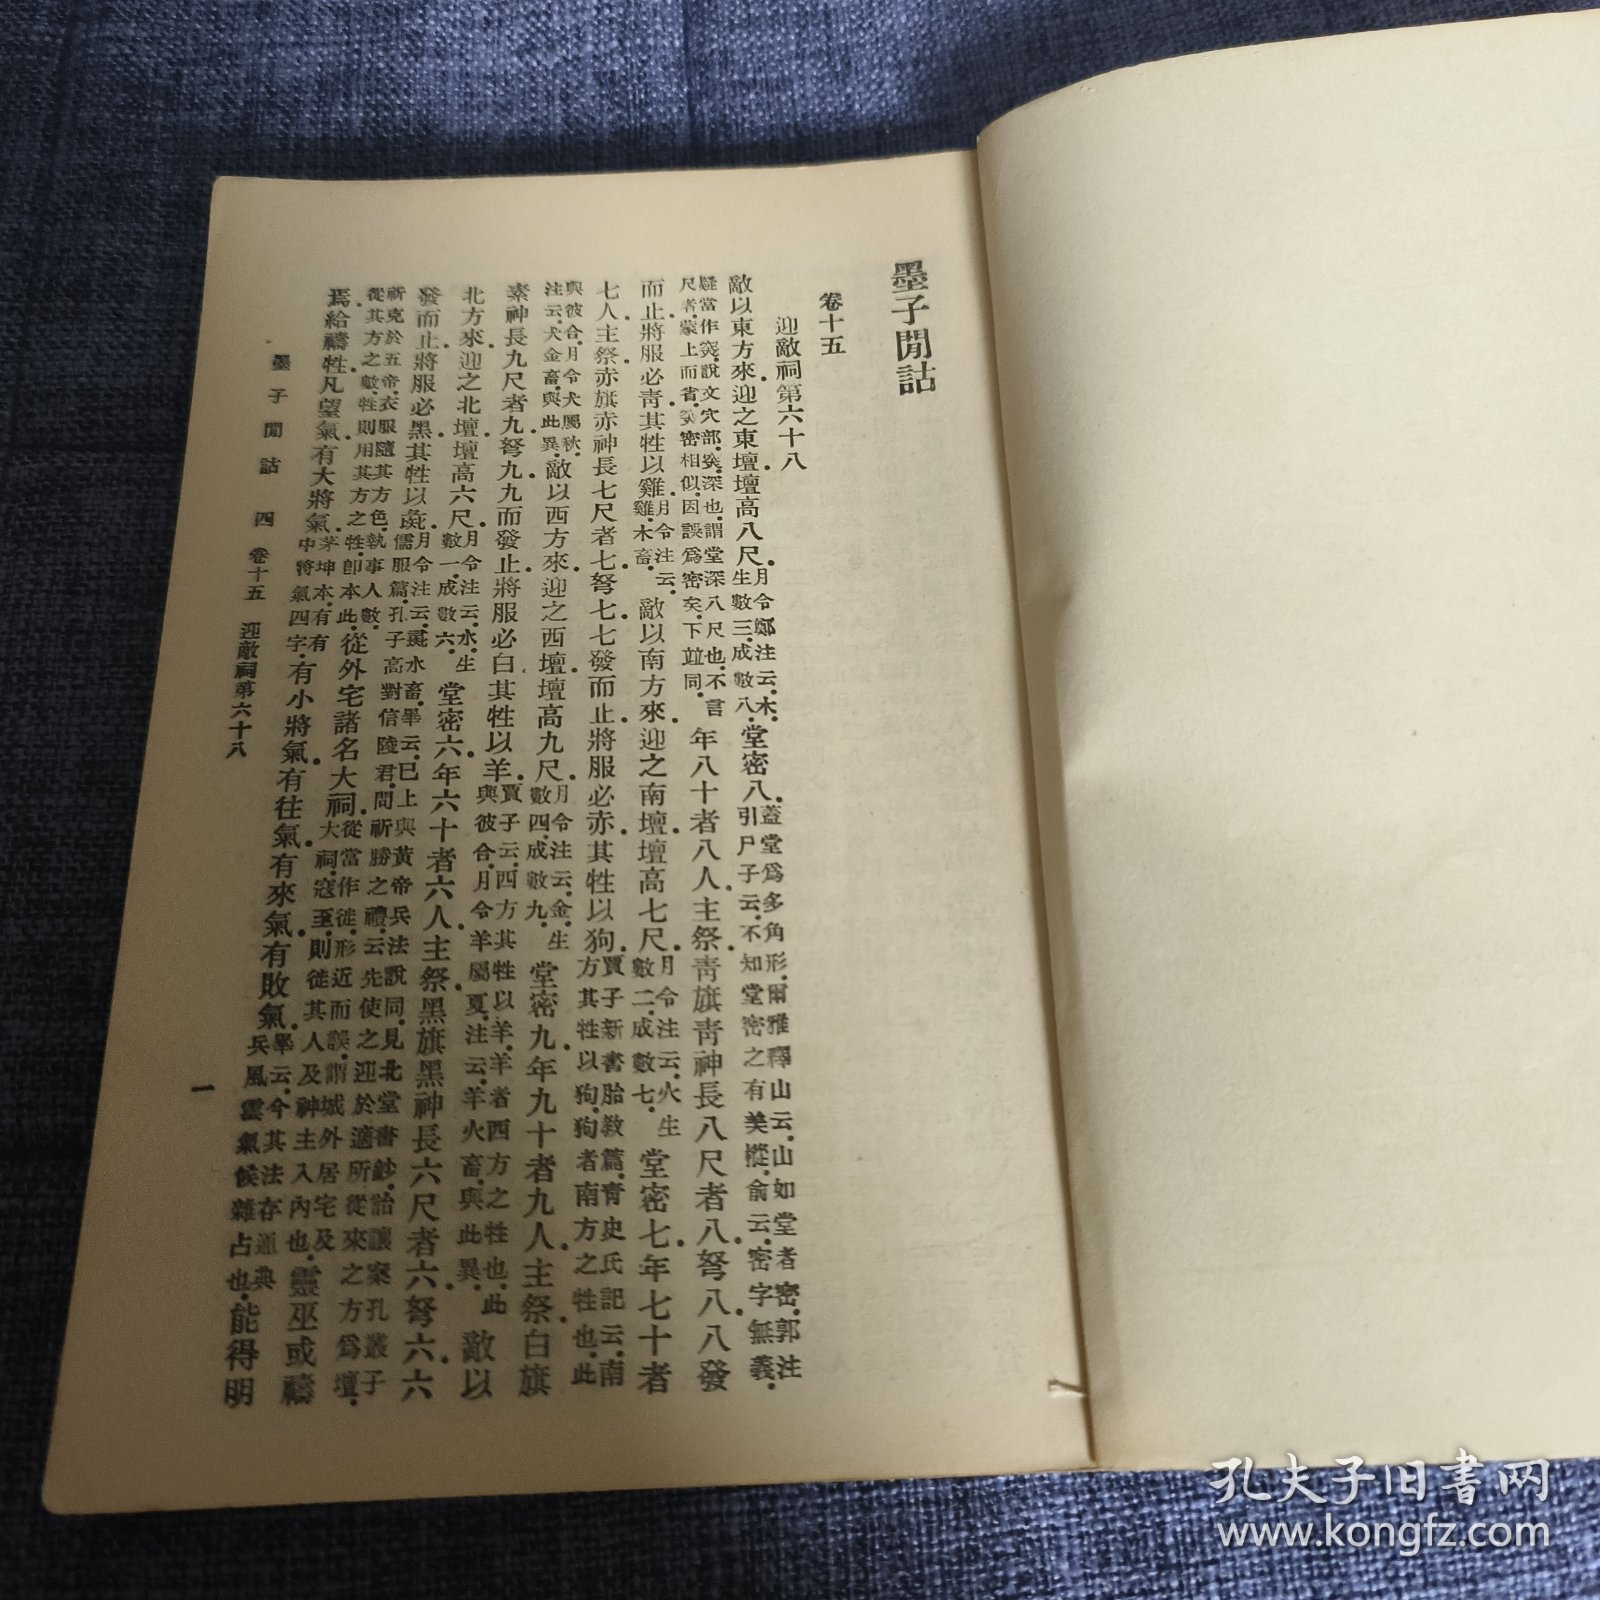 墨子閒詁
卷十五
迎敵祠第六十八
敵以東方來.迎之東壇.壇高八尺.月令鄭注云.木.生數三.成數八.堂密八.蓋堂爲多角形.爾雅釋山云.山如堂者密.郭注引尸子云.不知堂密之有美樅.俞云.密字無義.
疑當作㝔.說文穴部.㝔.深也.謂堂深八尺也.不言尺者.蒙上而省.㝔密相似.因誤爲密矣.下竝同.年八十者八人.主祭.青旗青神長八尺者八.弩八.八發
而止.將服必青.其牲以雞.月令注云.雞.木畜.敵以南方來.迎之南壇.壇高七尺.月令注云.火生數二.成數七.堂密七.年七十者
七人.主祭.赤旗赤神長七尺者七.弩七.七發而止.將服必赤.其牲以狗.賈子新書胎教篇.青史氏記云.南方其牲以狗.狗者南方之牲也.此
與彼合.月令犬屬秋.注云.犬金畜.與此異.敵以西方來.迎之西壇.壇高九尺.月令注云.金.生數四.成數九.堂密九.年九十者九人.主祭.白旗
素神長九尺者九.弩九.九而發止.將服必白.其牲以羊.賈子云.四方其牲以羊.羊者西方之牲也.此與彼合.月令羊屬夏.注云.羊火畜.與此異.敵以
北方來.迎之北壇.壇高六尺.月令注云.水.生數一.成數六.堂密六.年六十者六人.主祭.黑旗黑神長六尺者六.弩六.六
發而止.將服必黑.其牲以彘.月令注云.彘水畜.畢云.已上與黃帝兵法說同.見北堂書鈔.詒讓案孔叢子儒服篇.孔子高對信陵君.問祈勝之禮.云先使之迎於適所從來之方爲壇.
祈克於五帝.衣服隨其方色.執事人數.從其方之數.牲則用其方之牲.卽本此.從外宅諸名大祠.從當作徙.形近而誤.謂城外居宅及大祠.寇至.則徙其人及神主入內也.靈巫或禱
焉.給禱牲.凡望氣.有大將氣.茅坤本.有有中將氣四字.有小將氣.有往氣.有來氣.有敗氣.畢云.今其法存通典兵風雲氣候雜占也.能得明
墨子閒詁 四 卷十五 迎敵祠第六十八
一
孔夫子旧书网
www.kongfz.com